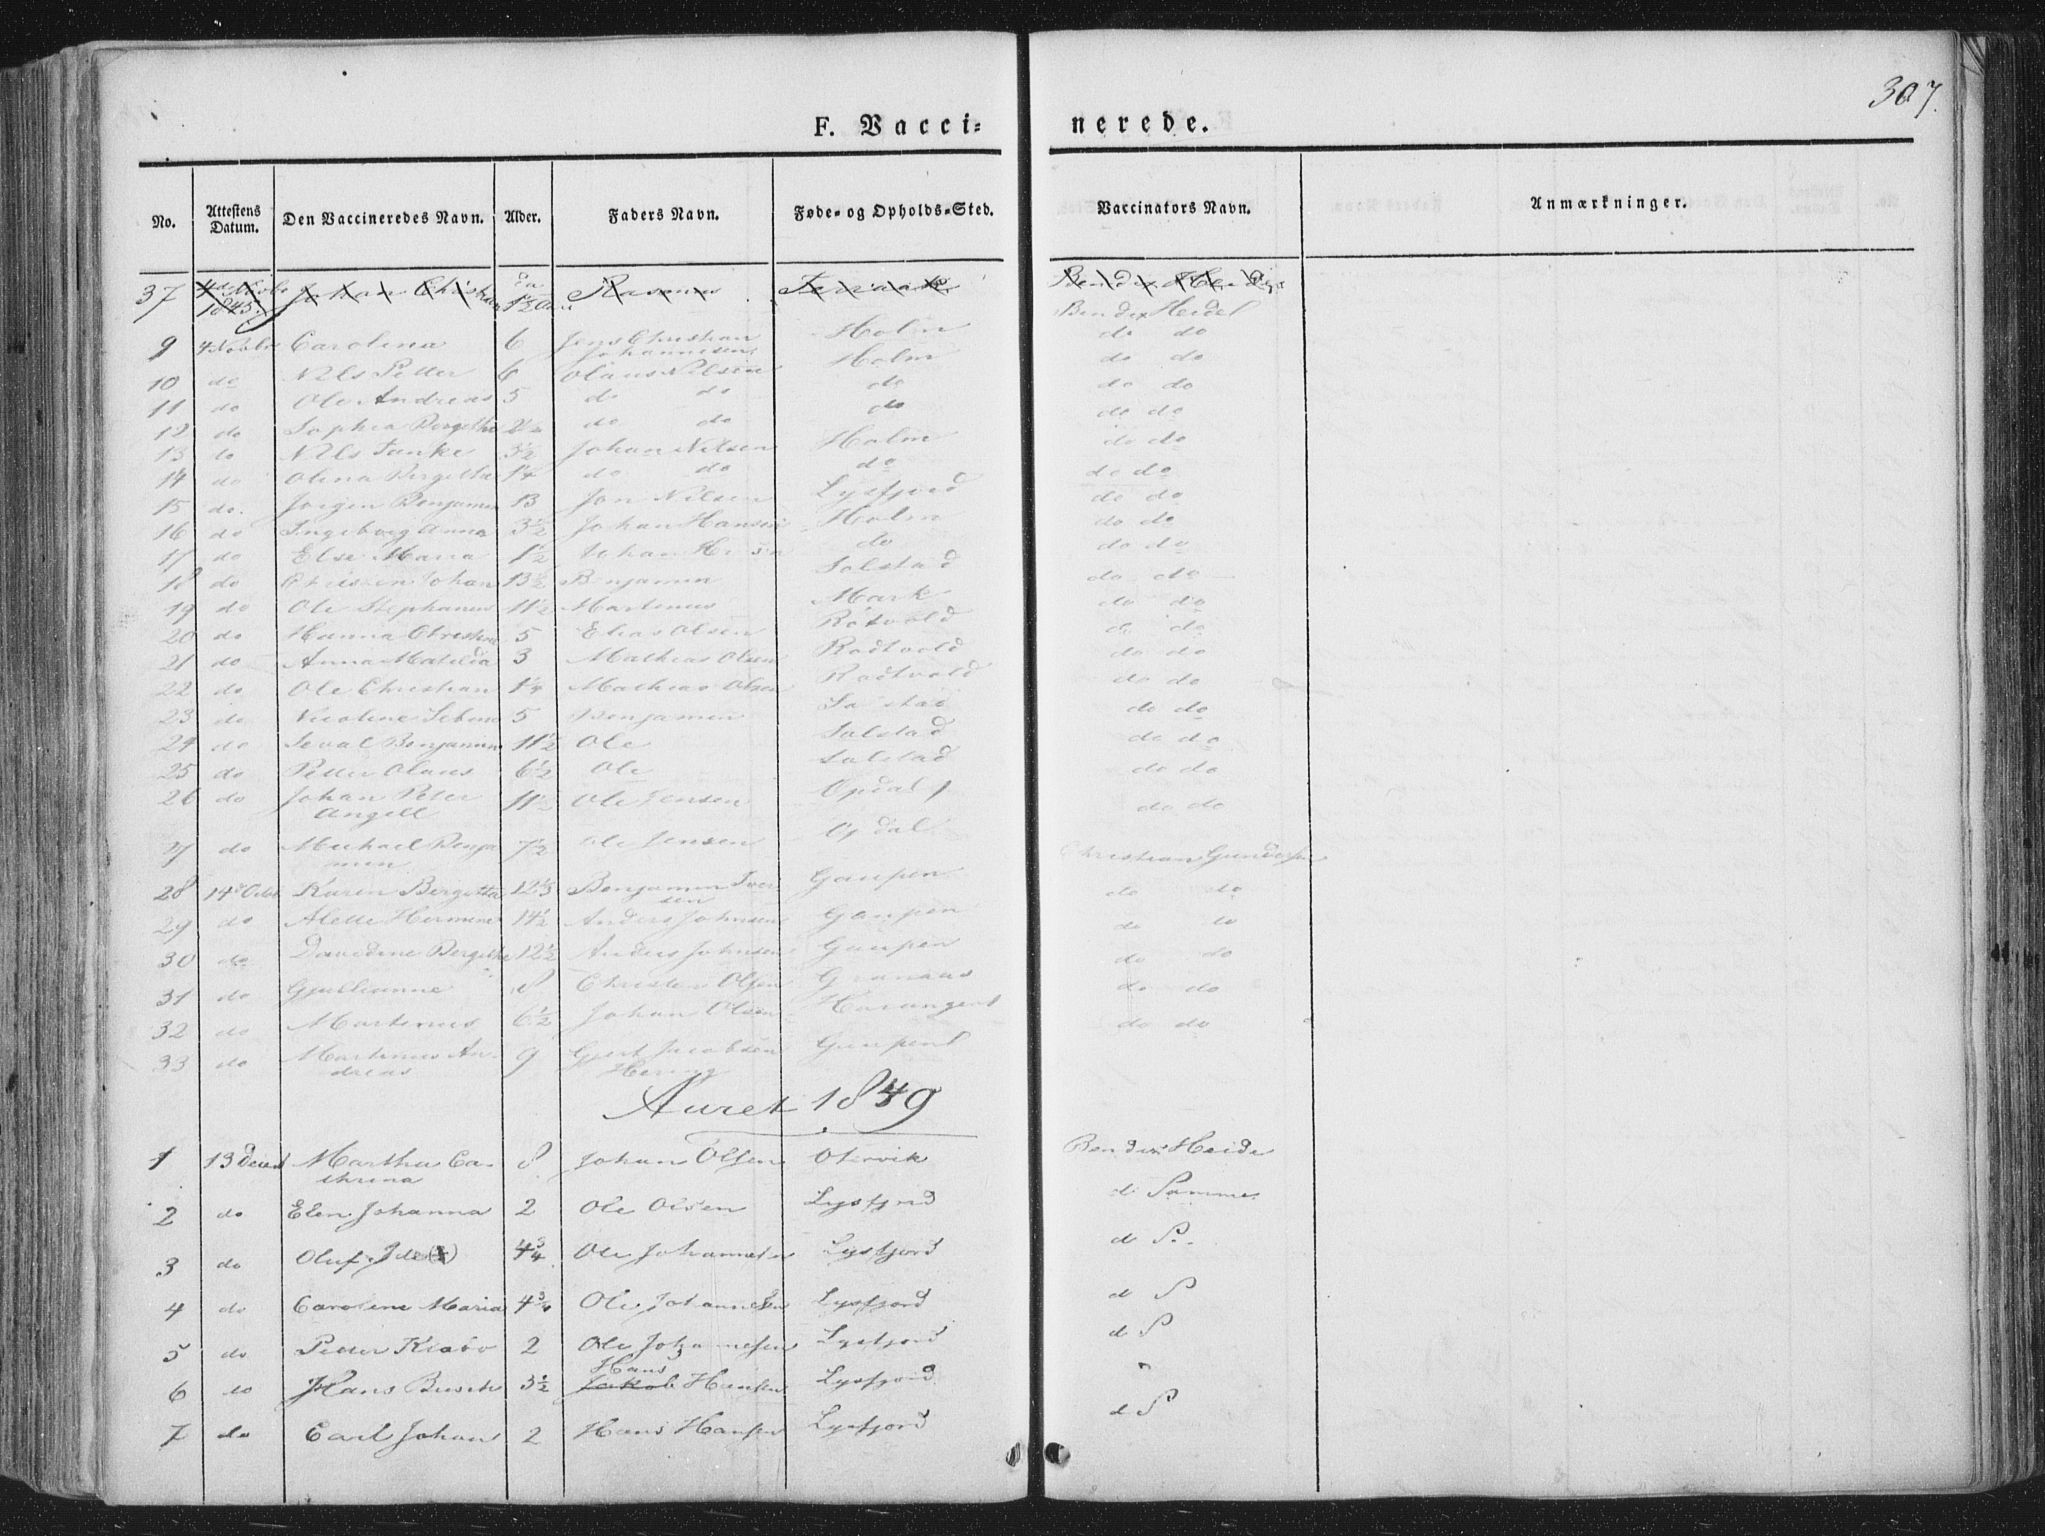 307.
F. Vacci- nerede.
No. Attestens Datum. Den Vaccineredes Navn. Alder. Faders Navn. Føde- og Opholds-Sted. Vaccinators Navn. Anmærkninger.
37 1845 Johan Christian Rasmus
Bendix Heidel
9 4 Novbr Carolina 6 Jens Christian Johannesen Holm do do
10 do Nils Petter 6 Olaus Nilsen Holm do do
11 do Ole Andreas 5 do do do do do
12 do Sophia Bergitha do do do do do
13 do Nils Tanke 3½ Johan Nilsen Holm do do
14 do Olina Bergitha 1¼ do do do do do
15 do. Jørgen Benjamin 13 Jon Nilsen Lysfjord do do
16 do Ingeborg Anna 3½ Johan Hansen Holm do do
17 do Else Maria 1½ Johan do do do
18 do Johan 13½ Benjamin Solstad do do
19 do Ole Stephanus 11½ Martinus Mark do do
20 do Hanna Christine 5 Elias Olsen Rotvold do do
21 do Anna Matilda 3 Mathias Olsen Rodtvold do do
22 do Ole Christian 1¼ Mathias Olsen Rodtvold do do
23 do Nicoline 5 Benjamin do do
24 do Benjamin 11½ Ole Solstad do do
25 do Petter Olaus 6½ Ole Solstad do do
26 do Johan Peter Angell 11½ Ole Jensen Opdal do do
27 do Michael Benjamin 7½ Ole Jensen Opdal
Christian Gundersen
28 14 Octbr Karen Bergitta 12⅓ Benjamin Iversen Gaupen do do
29 do Alette Hermine 14½ Anders Johnsen Gaupen do do
30 do Davidine Bergithe 12½ Anders Johnsen Gaupen do do
31 do Gjullianne 8 Christen Olsen Granaas do do
32 do Martinus 6½ Johan Olsen do do
33 do Martinus Andreas 9 Gjert Jacobsen Hering
Aaret 1849
1 13 Martha Cathrina 8 Johan Olsen Otervik Bendix Heide
2 do Elen Johanna 2 Ole Olsen Lysfjord d Samme
3 do Oluf 4¾ Ole Johannesen Lysfjord d S.
4 do Carolene Maria 4¾ Ole Johannesen Lysfjord d S
5 do Petter Kiabo 2 Ole Johannesen Lysfjord d S
6 do Hans Busch 3½ Jakob Hans Hansen Lysfjord "
7 do Carl Johan 2 Hans Hansen Lysfjord d S